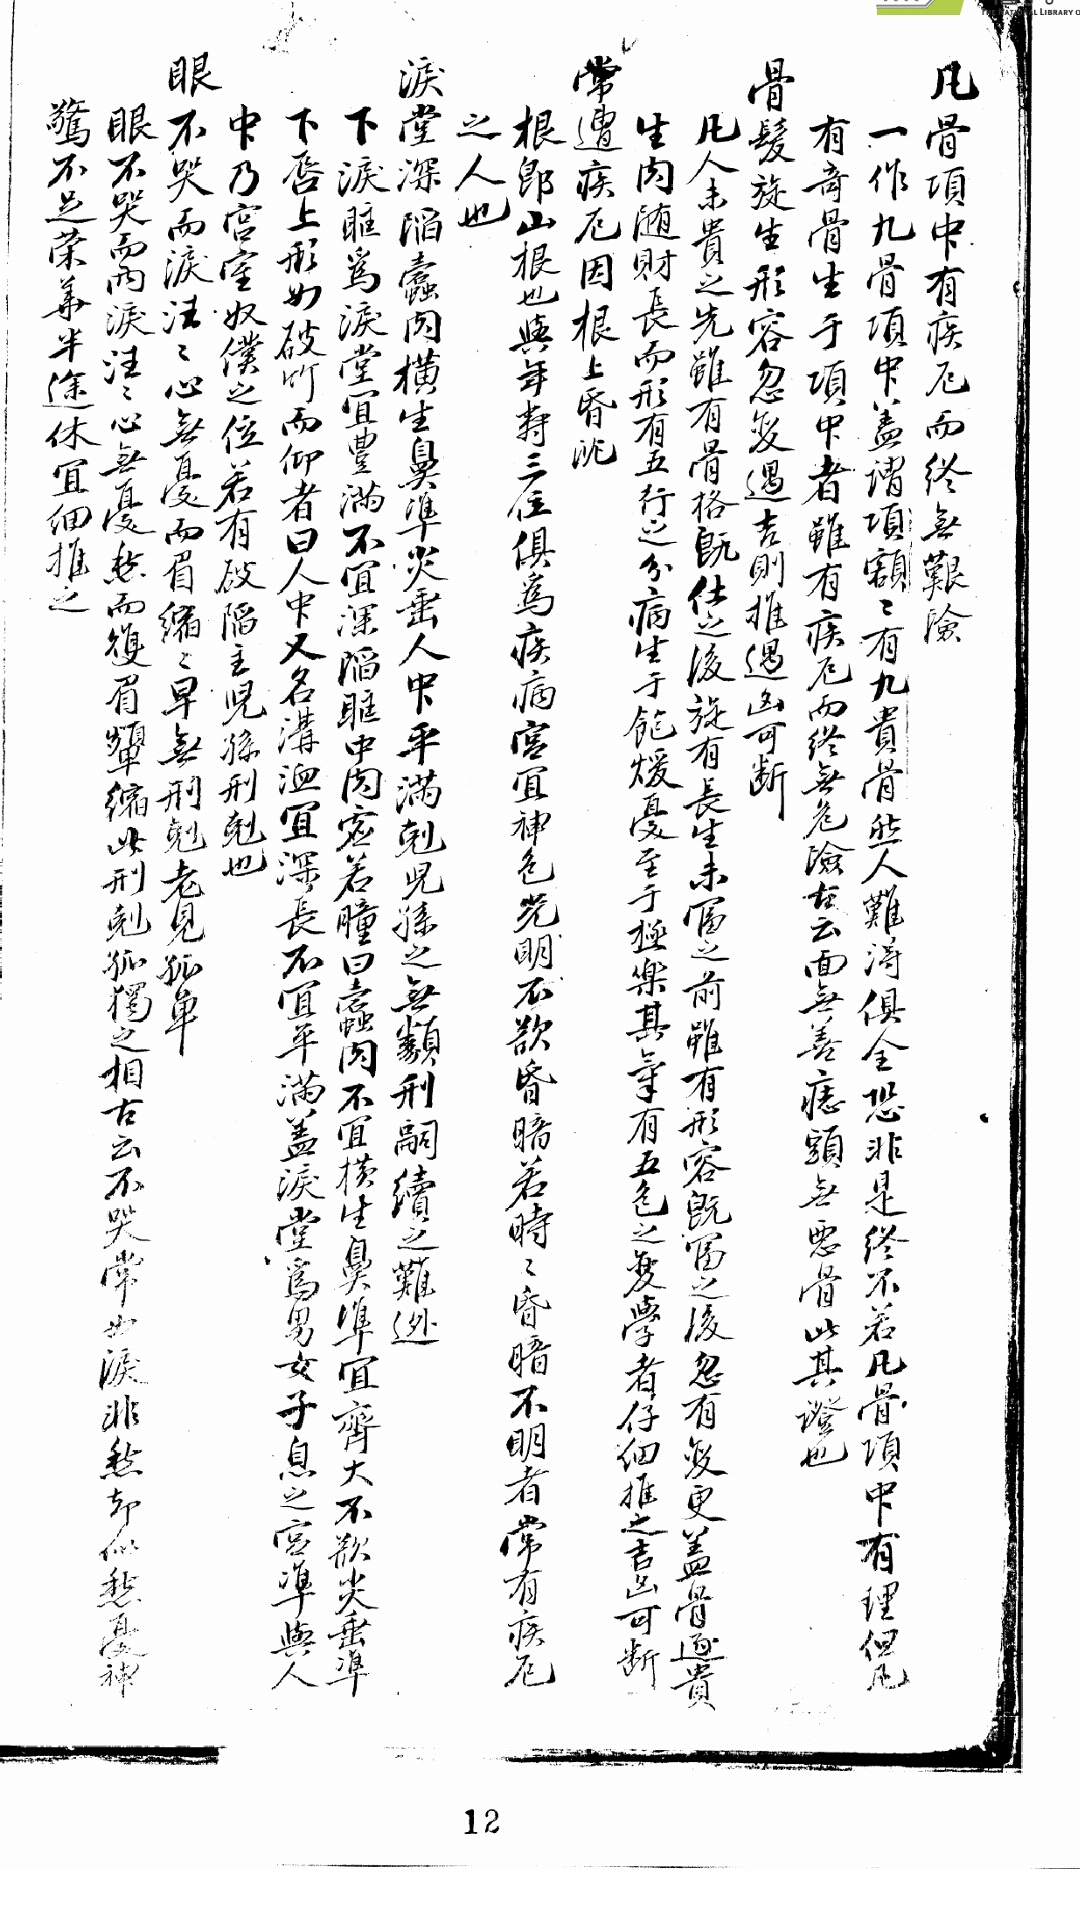 凡骨項中有疾厄而終無艱險
一作九骨項中蓋謂項額〻有九貴骨然人難得俱全恐非是終不若凡骨項中有理但凡
有奇骨生于項中者雖有疾厄而終無危險在云面無善痣頭無惡骨此其證也
骨髮旋生形容忽変遇吉則推遇凶可断
凡人未貴之先雖有骨格既仕之後旋有長生未冨之前雖有形容既冨之後忽有変更盖骨逐貴
生肉随財長而形有五行之分病生于飽煖憂至于極樂其氣有五色之変學者仔細推之吉凶可断
常遭疾厄因根上昏沉
根郎山根也與年寿三位俱爲疾病宮冝神色光明不欲昏暗若時〻昏暗不明者常有疾厄
之人也
淚堂深陷蠹肉橫生鼻準尖垂人中平滿剋児孫之無類刑嗣續之難逃
下淚眶爲淚堂冝豊滿不冝深陷眶中肉突若瞳曰蠹肉不冝橫生鼻準冝齊大不欲尖垂準
下唇上形如破竹而仰者曰人中又名溝洫冝深長不冝平滿盖淚堂爲男女子息之宮準與人
中乃宮室奴僕之位若有破陷主児孫刑剋也
眼不哭而淚汪〻心無憂而眉縮〻早無刑剋老見孤单
眼不哭而兩淚汪〻心無憂愁而復眉顰縮此刑剋孤獨之相古云不哭常如淚非愁却似愁憂神
驚不足荣華半途休冝細推之
12